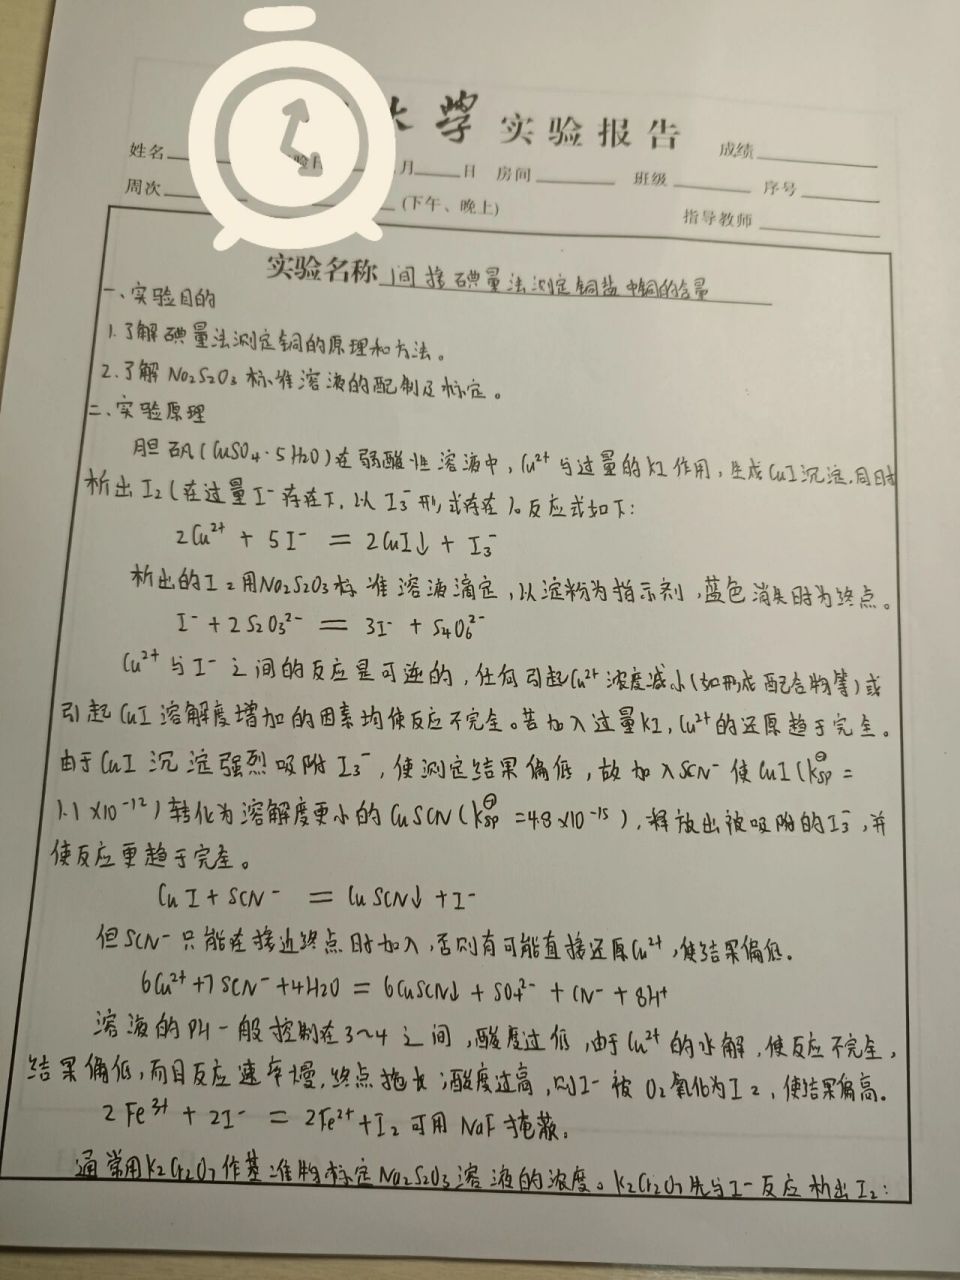 大学 实验报告
姓名 验日 月 日 房间 班级 序号 成绩
周次 (下午、晚上) 指导教师
实验名称 间接碘量法测定铜盐中铜的含量
一、实验目的
1.了解碘量法测定铜的原理和方法。
2.了解 Na2S2O3 标准溶液的配制及标定。
二、实验原理
胆矾(CuSO4·5H2O)在弱酸性溶液中,Cu²⁺与过量的KI作用,生成CuI沉淀,同时
析出I2(在过量I⁻存在下,以I3⁻形式存在)。反应式如下:
2Cu²⁺ + 5I⁻ = 2CuI↓ + I3⁻
析出的I2用Na2S2O3标准溶液滴定,以淀粉为指示剂,蓝色消失时为终点。
I⁻ + 2S2O3²⁻ = 3I⁻ + S4O6²⁻
Cu²⁺与I⁻之间的反应是可逆的,任何引起Cu²⁺浓度减小(如形成配合物等)或
引起CuI溶解度增加的因素均使反应不完全。若加入过量KI,Cu²⁺的还原趋于完全。
由于CuI沉淀强烈吸附I3⁻,使测定结果偏低,故加入SCN⁻使CuI(K⊖sp =
1.1×10⁻¹²)转化为溶解度更小的CuSCN(K⊖sp =4.8×10⁻¹⁵),释放出被吸附的I3⁻,并
使反应更趋于完全。
CuI + SCN⁻ = CuSCN↓ + I⁻
但SCN⁻只能在接近终点时加入,否则有可能直接还原Cu²⁺,使结果偏低。
6Cu²⁺+7SCN⁻+4H2O = 6CuSCN↓ + SO4²⁻ + CN⁻ + 8H⁺
溶液的PH一般控制在3~4之间,酸度过低,由于Cu²⁺的水解,使反应不完全,
结果偏低,而且反应速率慢,终点拖长;酸度过高,则I⁻被O2氧化为I2,使结果偏高。
2Fe³⁺ + 2I⁻ = 2Fe²⁺+I2可用NaF掩蔽。
通常用K2Cr2O7作基准物标定Na2S2O3溶液的浓度。K2Cr2O7先与I⁻反应析出I2: